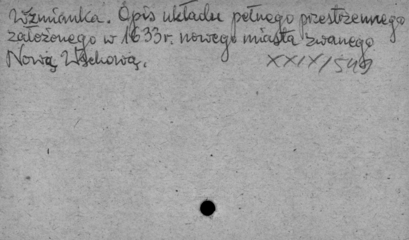 Wzmianka. Opis układu pełnego przestrzennego
założonego w 1633 r. nowego miasta zwanego
Nową Wschową. XXIX/549